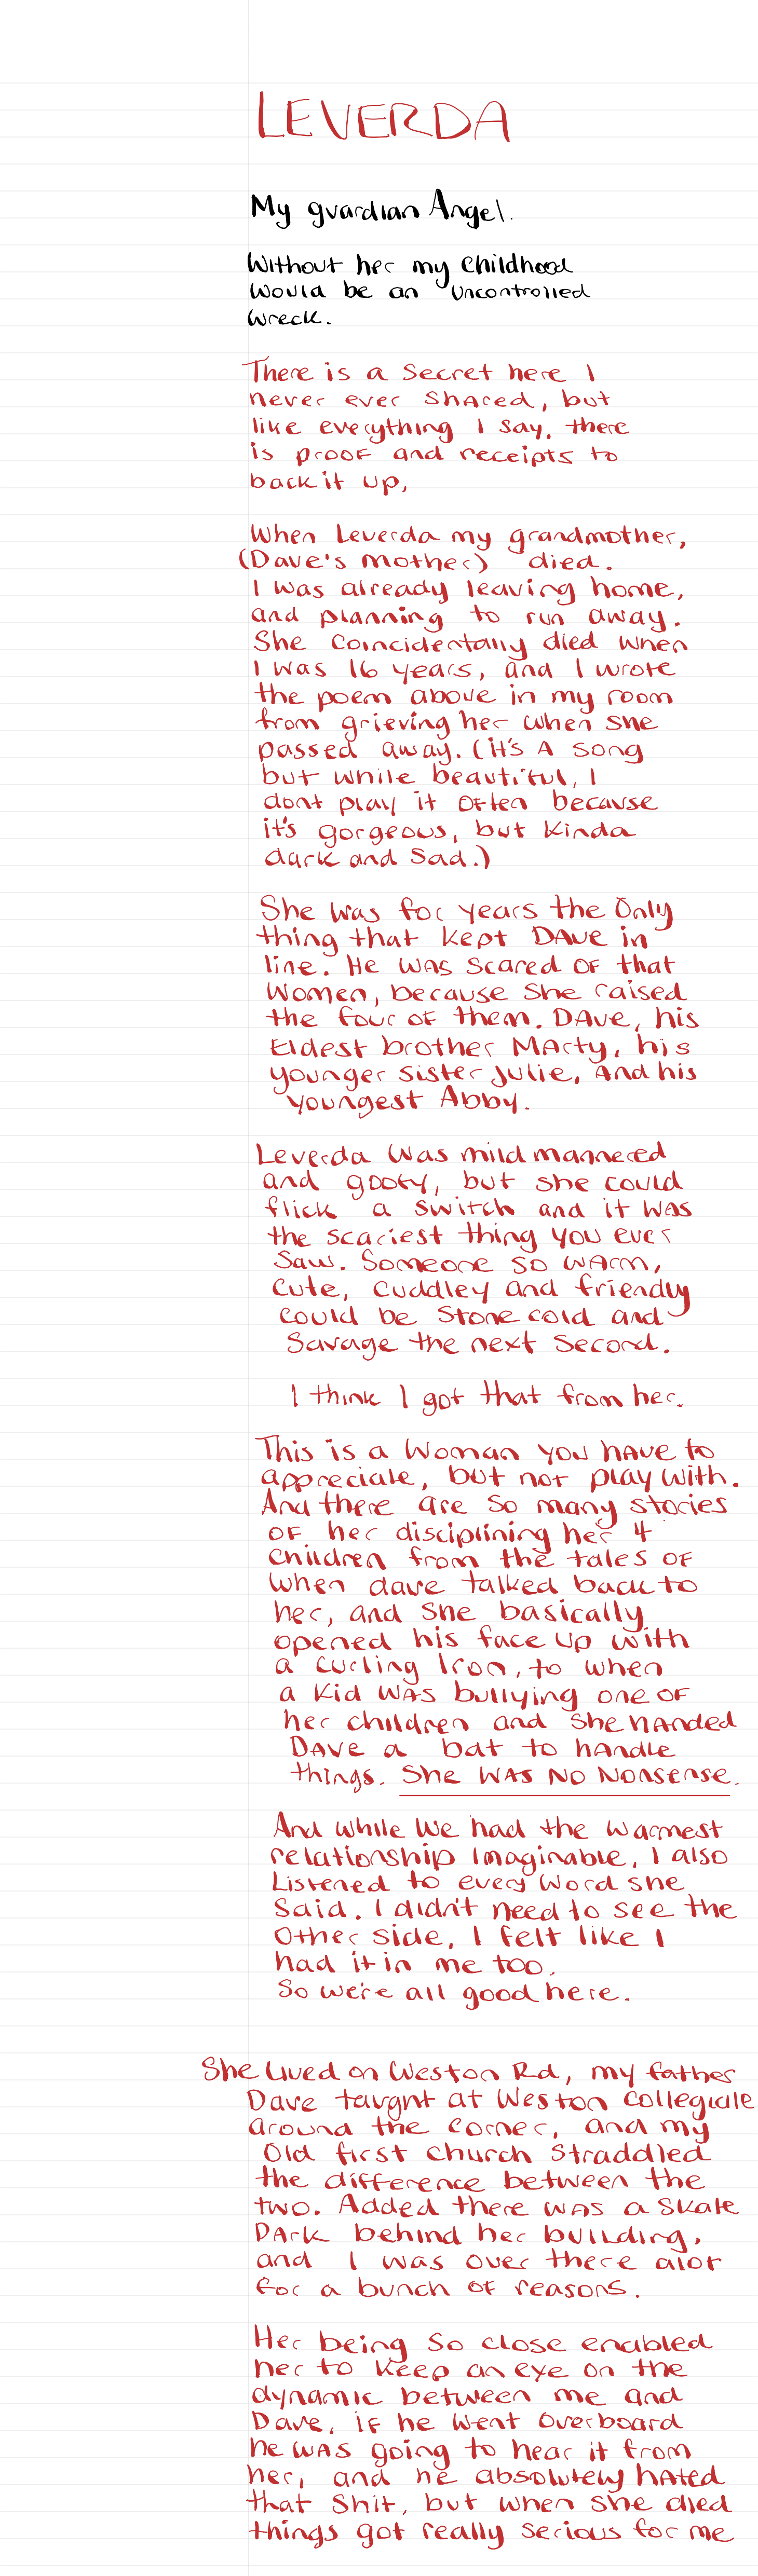 LEVERDA
My guardian Angel.
Without her my childhood
would be an uncontrolled
wreck.
There is a secret here I
never ever shared, but
like everything I say. there
is proof and receipts to
back it up,
When Leverda my grandmother,
(Dave's mother) died.
I was already leaving home,
and planning to run away.
She coincidentally died when
I was 16 years, and I wrote
the poem above in my room
from grieving her when she
passed away. (it's A song
but while beautiful, I
dont play it often because
it's gorgeous, but kinda
dark and sad.)
She was for years the only
thing that kept DAVE in
line. He WAS scared OF that
women, because she raised
the four of them. DAVE, his
Eldest brother MArty, his
younger sister Julie, And his
youngest Abby.
Leverda was mild mannered
and goofy, but she could
flick a switch and it WAS
the scariest thing you ever
saw. Someone so wArm,
cute, cuddley and friendly
could be stone cold and
savage the next second.
I think I got that from her.
This is a woman you hAve to
appreciate, but not play with.
And there are so many stories
OF her disciplining her 4
children from the tales OF
when dave talked back to
her, and she basically
opened his face up with
a curling Iron, to when
a kid WAS bullying one OF
her children and she hAnded
DAVE a bat to hAndle
things. She WAS NO NONSENSE.
And while we had the warmest
relationship Imaginable, I also
Listened to every word she
said. I didn't need to see the
other side, I felt like I
had it in me too.
So we're all good here.
She lived on Weston Rd, my father
Dave taught at Weston collegiate
around the corner, and my
old first church straddled
the difference between the
two. Added there WAS a skate
PArk behind her building,
and I was over there alot
for a bunch of reasons.
Her being so close enabled
her to keep an eye on the
dynamic between me and
Dave, if he went overboard
he WAS going to hear it from
her, and he absolutely hAted
that shit, but when she died
things got really serious for me